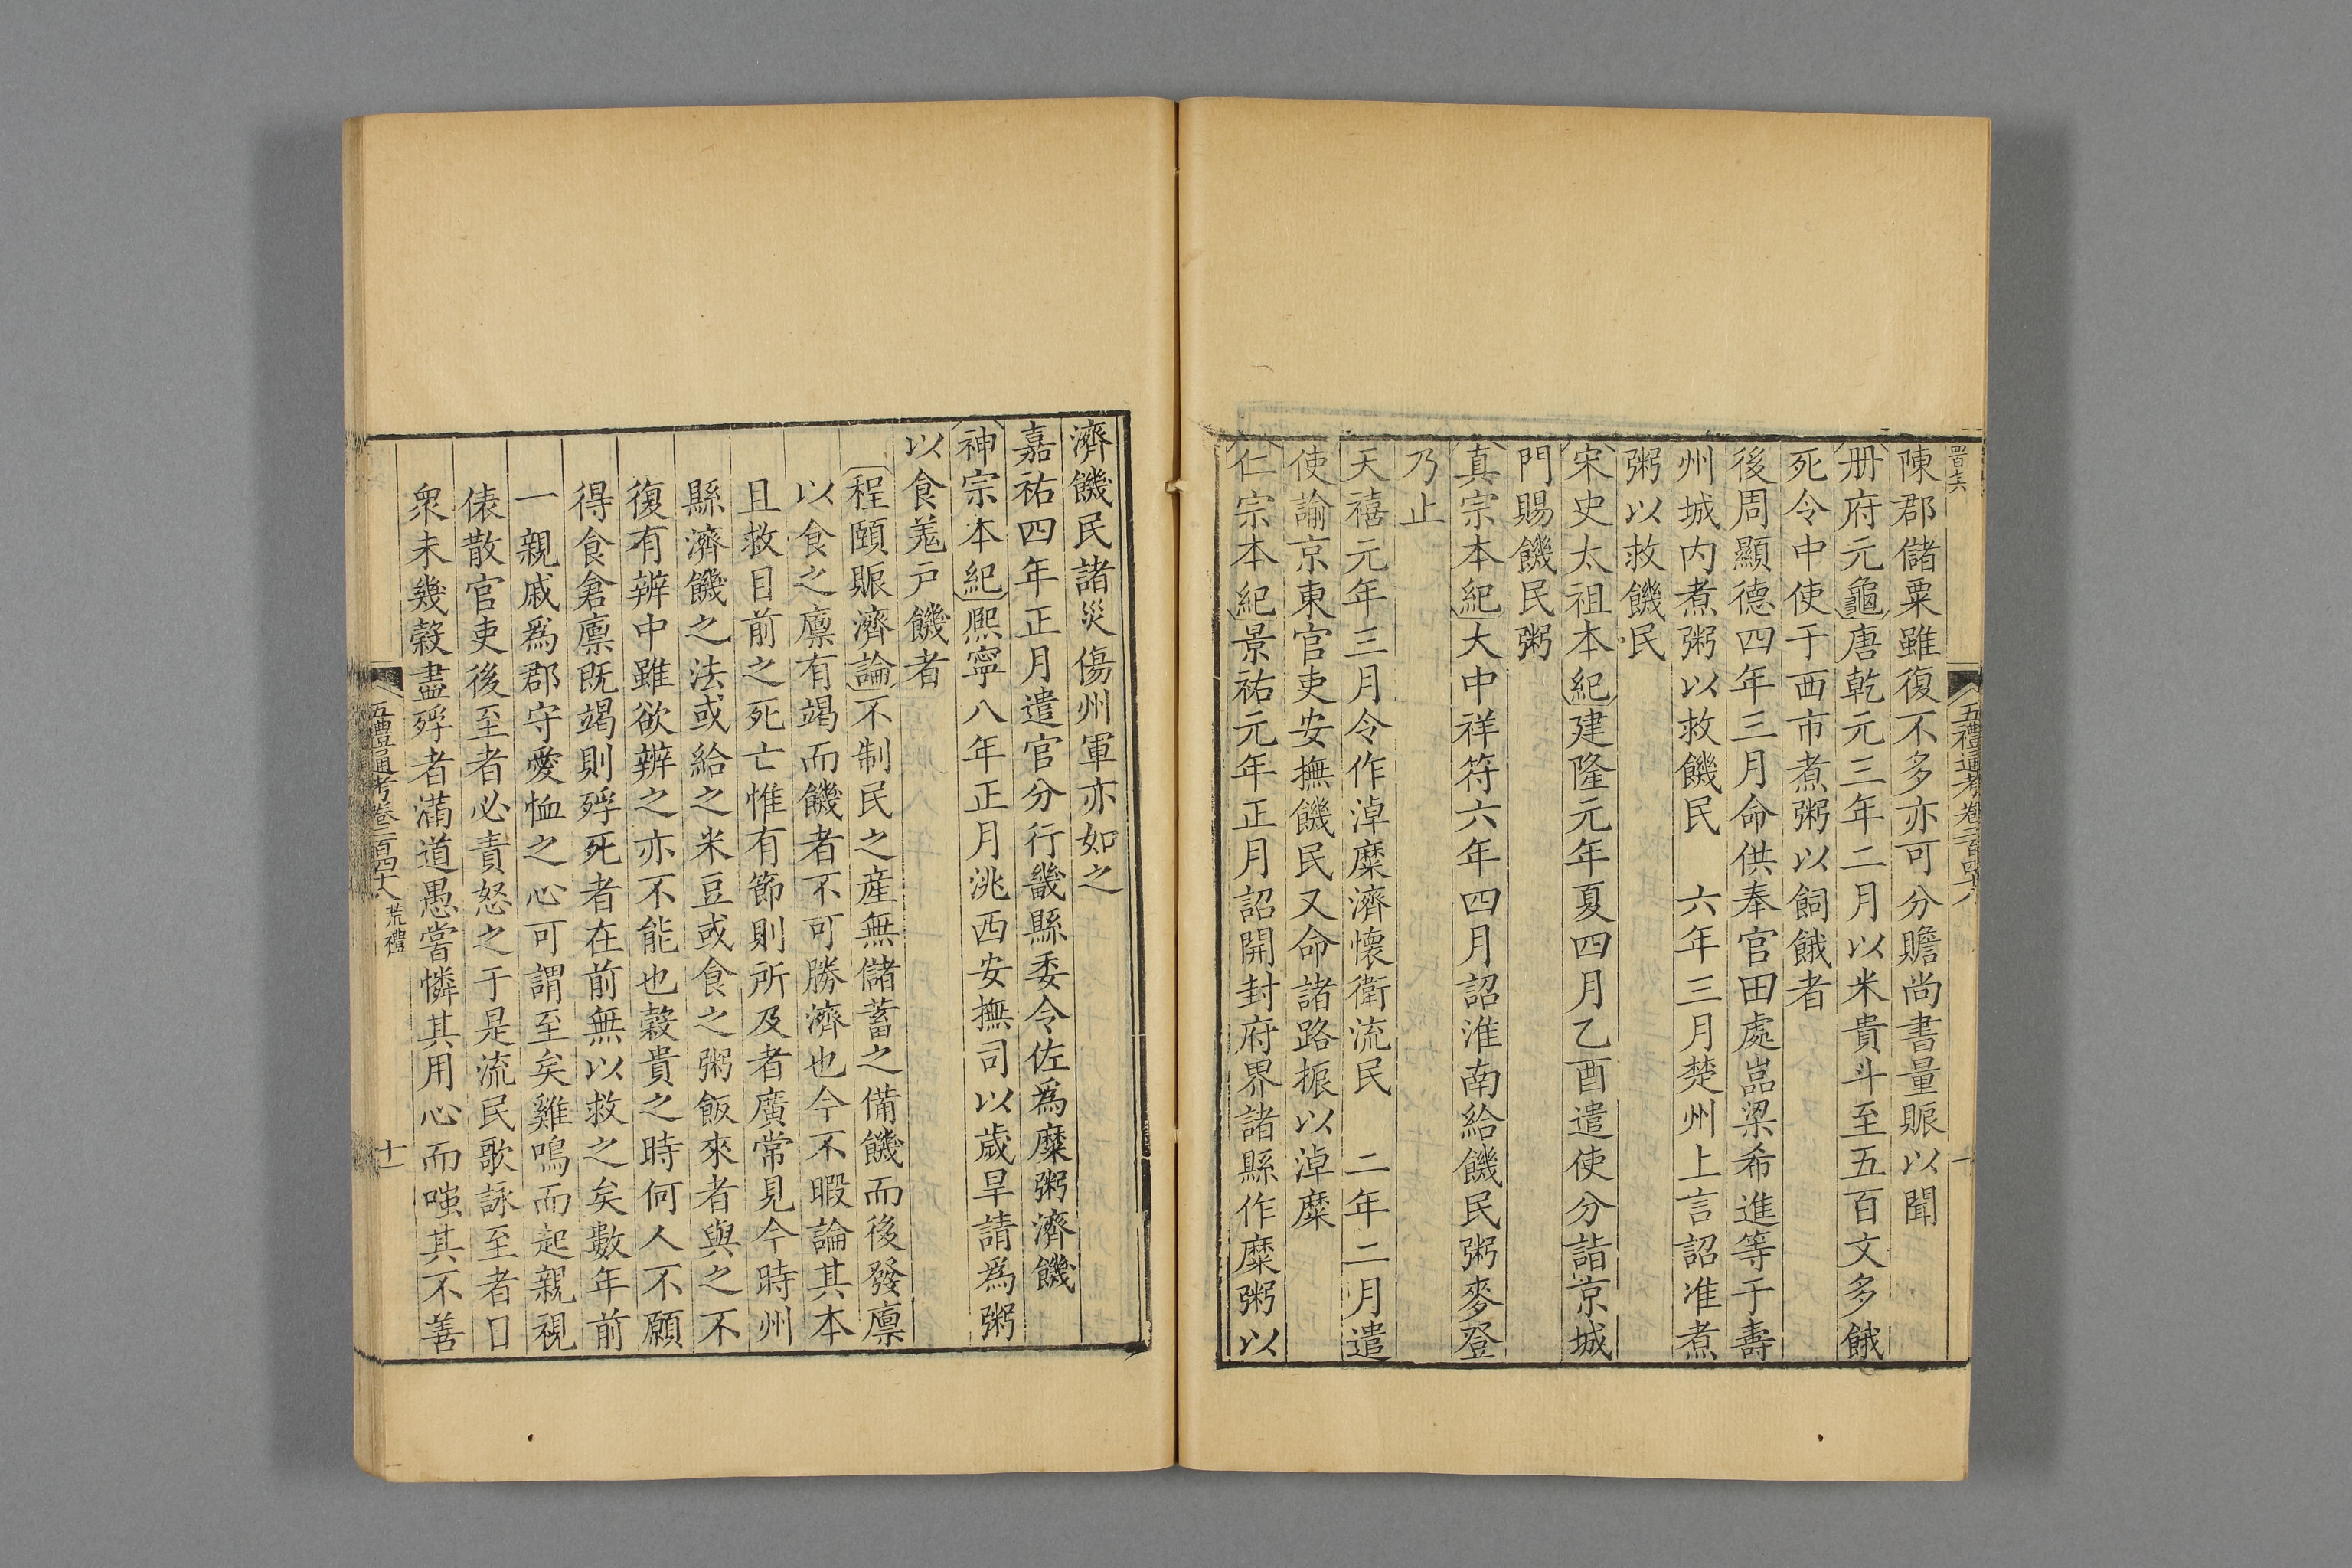 五禮通考卷二百四十八
陳郡儲粟雖復不多亦可分贍尚書量賑以聞
册府元龜唐乾元三年二月以米貴斗至五百文多餓
死令中使于西市煮粥以飼餓者
後周顯德四年三月命供奉官田處嵓梁希進等于壽
州城内煮粥以救饑民　六年三月楚州上言詔准煮
粥以救饑民
宋史太祖本紀建隆元年夏四月乙酉遣使分詣京城
門賜饑民粥
真宗本紀大中祥符六年四月詔淮南給饑民粥麥登
乃止
天禧元年三月令作淖糜濟懷衛流民　二年二月遣
使諭京東官吏安撫饑民又命諸路振以淖糜
仁宗本紀景祐元年正月詔開封府界諸縣作糜粥以
濟饑民諸災傷州軍亦如之
嘉祐四年正月遣官分行畿縣委令佐爲糜粥濟饑
神宗本紀熙寧八年正月洮西安撫司以歲旱請爲粥
以食羌戸饑者
程頤賑濟論不制民之産無儲蓄之備饑而後發廪
以食之廪有竭而饑者不可勝濟也今不暇論其本
且救目前之死亡惟有節則所及者廣常見今時州
縣濟饑之法或給之米豆或食之粥飯來者與之不
復有辨中雖欲辨之亦不能也穀貴之時何人不願
得食倉廪既竭則殍死者在前無以救之矣數年前
一親戚爲郡守愛恤之心可謂至矣雞鳴而起親視
俵散官吏後至者必責怒之于是流民歌詠至者日
衆未幾穀盡殍者滿道愚嘗憐其用心而嗤其不善
五禮通考卷二百四十八　荒禮　十一